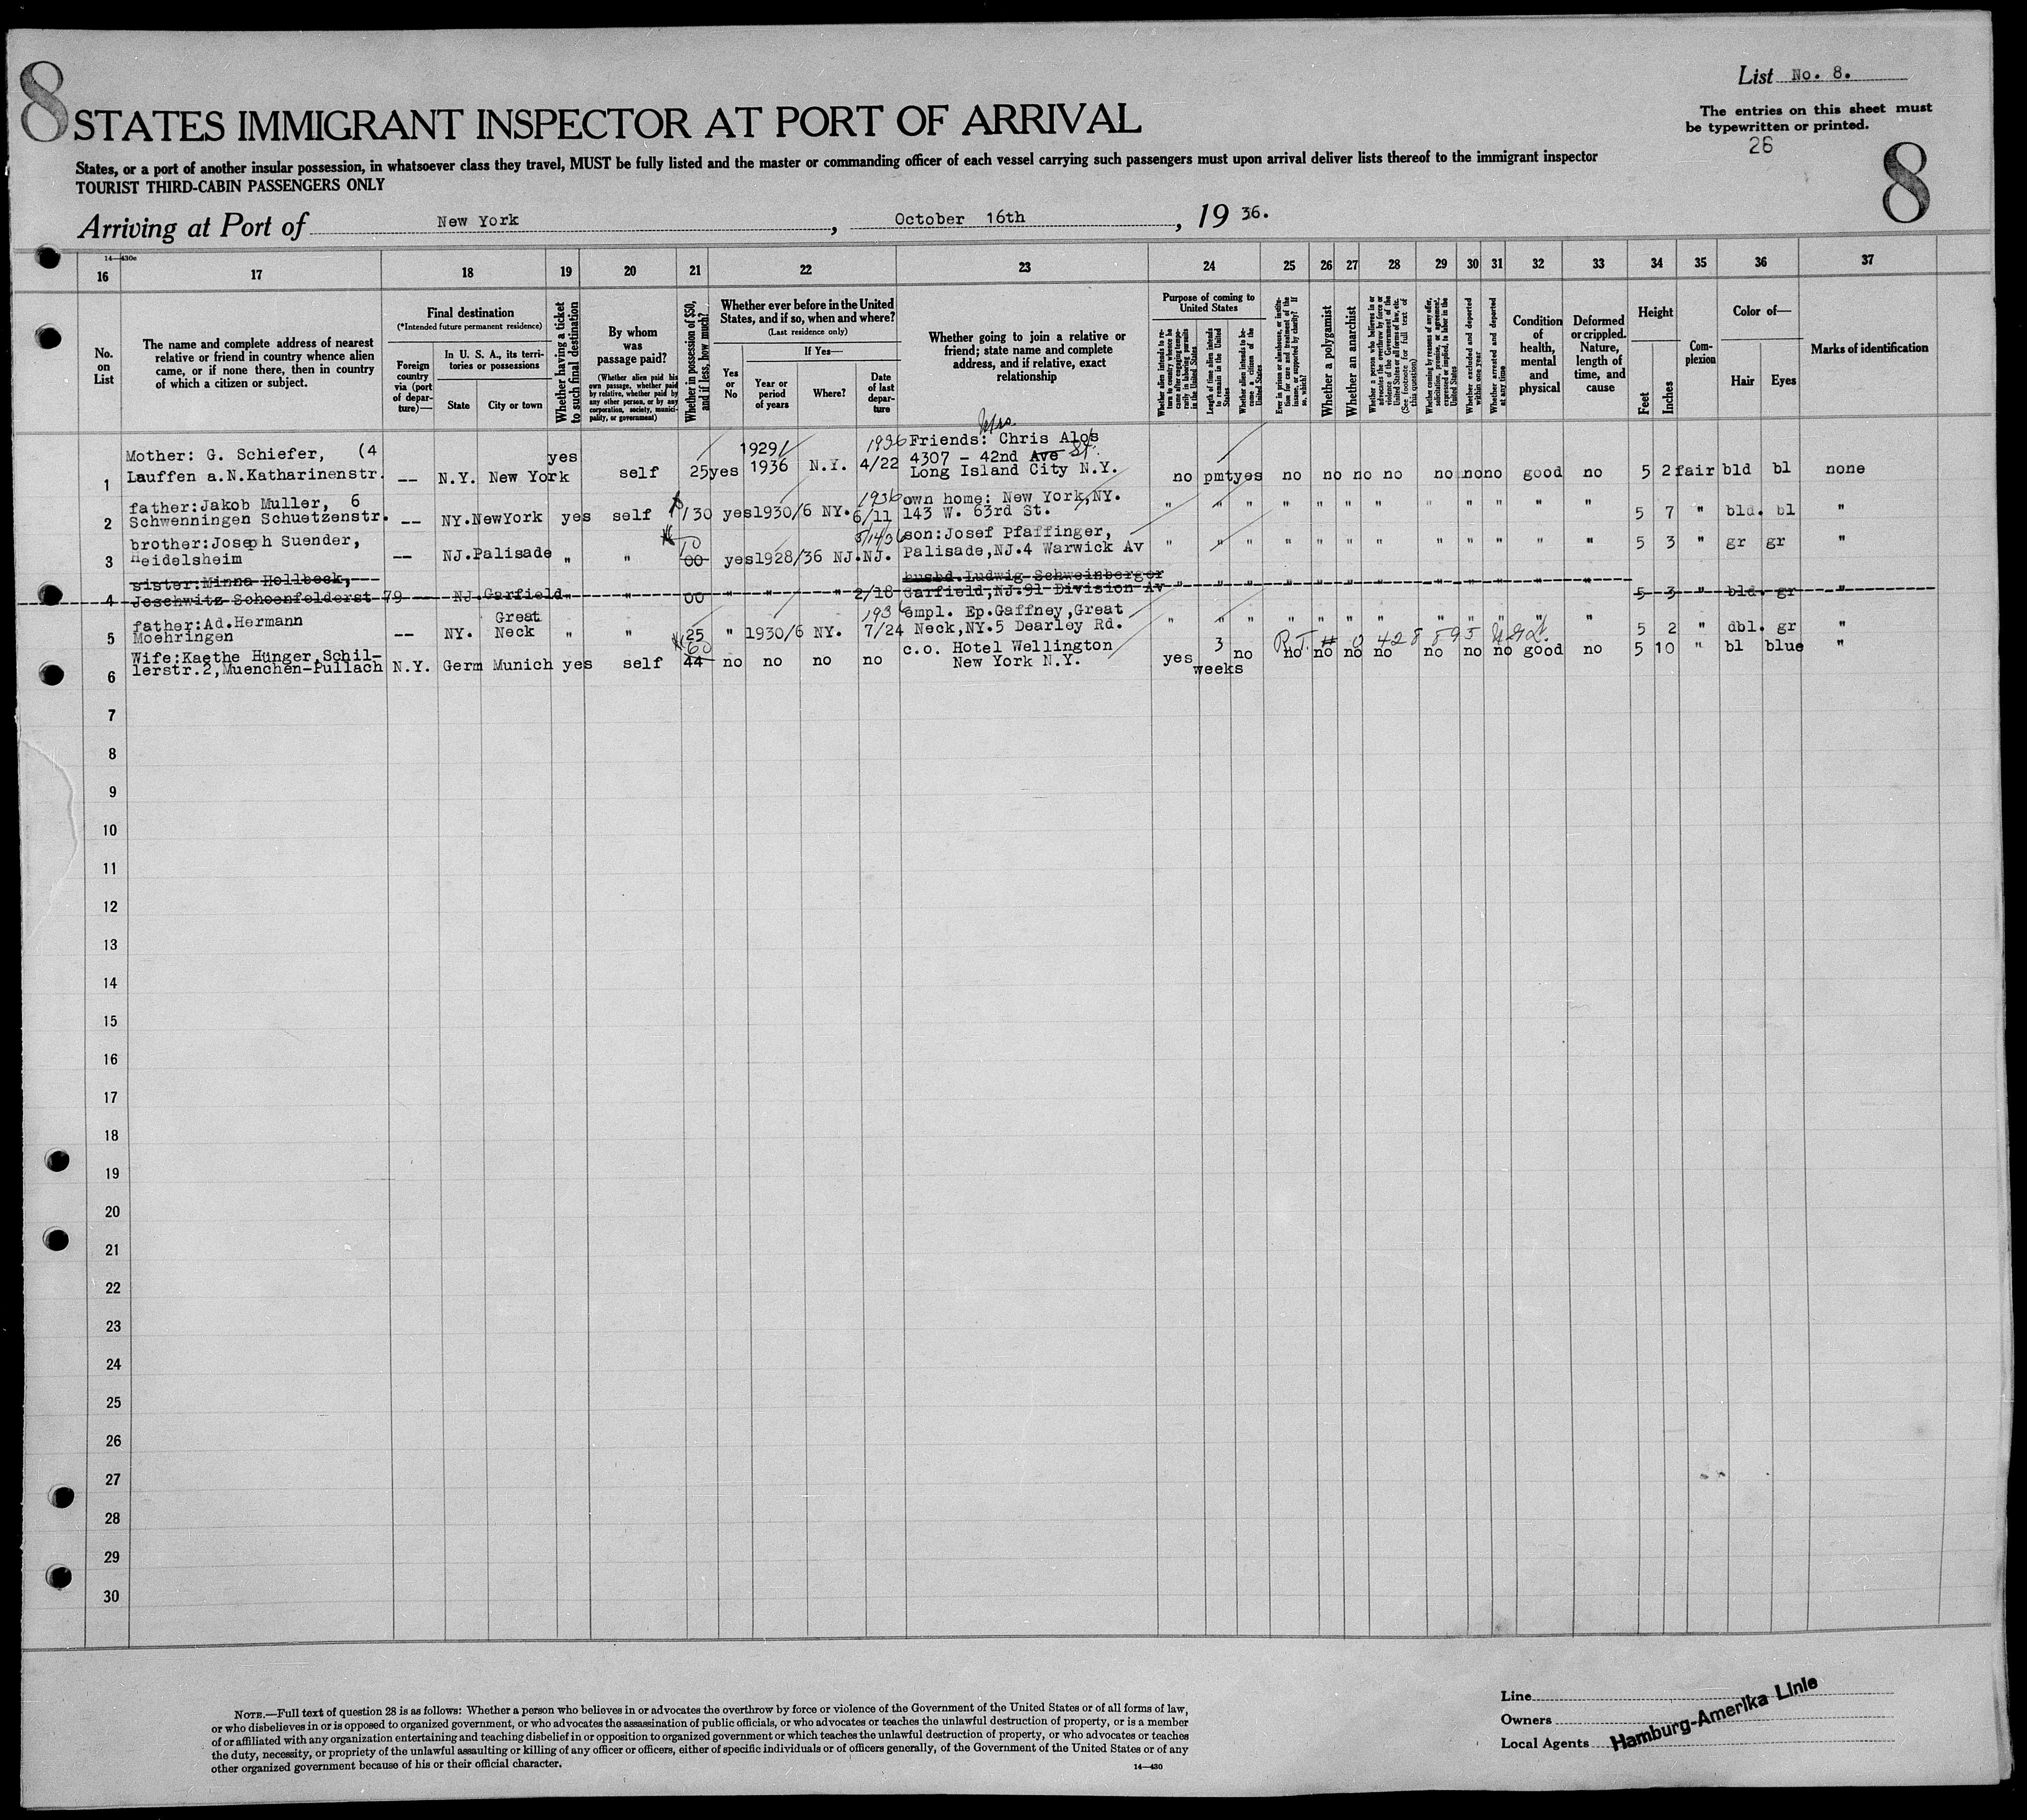 8
List No. 8.
STATES IMMIGRANT INSPECTOR AT PORT OF ARRIVAL
The entries on this sheet must
be typewritten or printed.
26
8
States, or a port of another insular possession, in whatsoever class they travel, MUST be fully listed and the master or commanding officer of each vessel carrying such passengers must upon arrival deliver lists thereof to the immigrant inspector
TOURIST THIRD-CABIN PASSENGERS ONLY
Arriving at Port of New York, October 16th, 19 36.
14—430c
16 17 18 19 20 21 22 23 24 25 26 27 28 29 30 31 32 33 34 35 36 37
No.
on
List
The name and complete address of nearest
relative or friend in country whence alien
came, or if none there, then in country
of which a citizen or subject.
Final destination
(*Intended future permanent residence)
Foreign
country
via (port
of depar-
ture)—
In U. S. A., its terri-
tories or possessions
State
City or town
Whether having a ticket
to such final destination
By whom
was
passage paid?
(Whether alien paid his
own passage, whether paid
by relative, whether paid by
any other person, or by any
corporation, society, munici-
pality, or government)
Whether in possession of $50,
and if less, how much?
Whether ever before in the United
States, and if so, when and where?
(Last residence only)
Yes
or
No
If Yes—
Year or
period
of years
Where?
Date
of last
depar-
ture
Whether going to join a relative or
friend; state name and complete
address, and if relative, exact
relationship
Purpose of coming to
United States
Whether alien intends to re-
turn to country whence he
came after engaging tempo-
rarily in laboring pursuits
in the United States
Length of time alien intends
to remain in the United
States
Whether alien intends to be-
come a citizen of the
United States
Ever in prison or almshouse, or institu-
tion for care and treatment of the
insane, or supported by charity? If
so, which?
Whether a polygamist
Whether an anarchist
Whether a person who believes in or
advocates the overthrow by force or
violence of the Government of the
United States or all forms of law, etc.
(See footnote for full text of
this question)
Whether coming by reason of any offer,
solicitation, promise, or agreement,
expressed or implied, to labor in the
United States
Whether excluded and deported
within one year
Whether arrested and deported
at any time
Condition
of
health,
mental
and
physical
Deformed
or crippled.
Nature,
length of
time, and
cause
Height
Feet
Inches
Com-
plexion
Color of—
Hair
Eyes
Marks of identification
Mrs
Mother: G. Schiefer, (4 yes 1929/ 1936 Friends: Chris Alos
1 Lauffen a.N.Katharinenstr. -- N.Y. New York self 25 yes 1936 N.Y. 4/22 4307 - 42nd Ave St.
Long Island City N.Y. no pmt yes no no no no no no no good no 5 2 fair bld bl none
father:Jakob Muller, 6 1936 own home: New York, NY.
2 Schwenningen Schuetzenstr. -- NY. NewYork yes self 130 yes 1930/6 NY. 6/11 143 W. 63rd St. " " " " " " " " " " " " 5 7 " bld. bl "
brother:Joseph Suender, 70 5/14/36 son:Josef Pfaffinger,
3 Heidelsheim -- NJ. Palisade " " 00 yes 1928/36 NJ. NJ. Palisade,NJ.4 Warwick Av " " " " " " " " " " " " 5 3 " gr gr "
sister:Minna Hollbeck, husbd. Ludwig Schweinberger
4 Joschwitz Schoenfelderst 79 NJ. Garfield " " 00 " " " 2/18 Garfield,NJ.91 Division Av " " " " " " " " " " " " 5 3 " bld. gr "
father:Ad.Hermann Great 1936 empl. Ep.Gaffney,Great
5 Moehringen -- NY. Neck " " 25 " 1930/6 NY. 7/24 Neck,NY.5 Dearley Rd. " " " " " " " " " " " " 5 2 " dbl. gr "
P.T. # 0 428 895
Wife:Kaethe Hünger,Schil- 60 c.o. Hotel Wellington
6 lerstr.2,Muenchen-Pullach N.Y. Germ Munich yes self 44 no no no no New York N.Y. yes 3 weeks no no no no no no no no good no 5 10 " bl blue "
7
8
9
10
11
12
13
14
15
16
17
18
19
20
21
22
23
24
25
26
27
28
29
30
NOTE.—Full text of question 28 is as follows: Whether a person who believes in or advocates the overthrow by force or violence of the Government of the United States or of all forms of law,
or who disbelieves in or is opposed to organized government, or who advocates the assassination of public officials, or who advocates or teaches the unlawful destruction of property, or is a member
of or affiliated with any organization entertaining and teaching disbelief in or opposition to organized government or which teaches the unlawful destruction of property, or who advocates or teaches
the duty, necessity, or propriety of the unlawful assaulting or killing of any officer or officers, either of specific individuals or of officers generally, of the Government of the United States or of any
other organized government because of his or their official character.
14—430
Line
Owners
Local Agents
Hamburg-Amerika Linie